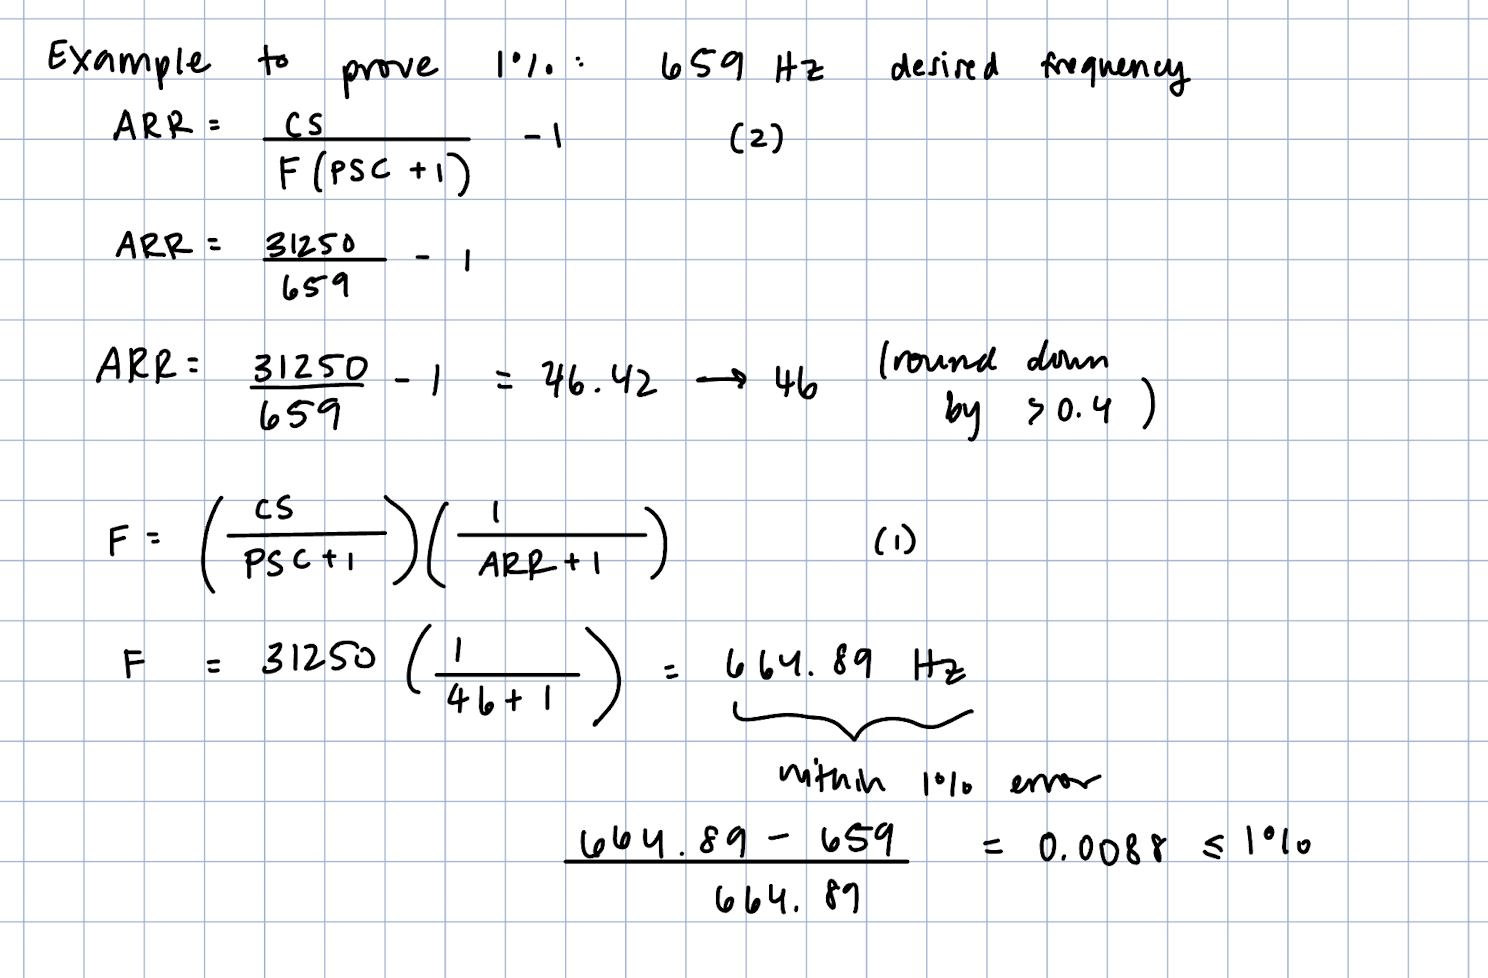 Example to prove 1%: 659 Hz desired frequency
ARR = CS / F(PSC +1) - 1 (2)
ARR = 31250 / 659 - 1
ARR = 31250 / 659 - 1 = 46.42 → 46 (round down by >0.4)
F = (CS / PSC+1)(1 / ARR+1) (1)
F = 31250 (1 / 46+1) = 664.89 Hz
within 1% error
664.89 - 659 / 664.89 = 0.0088 ≤ 1%